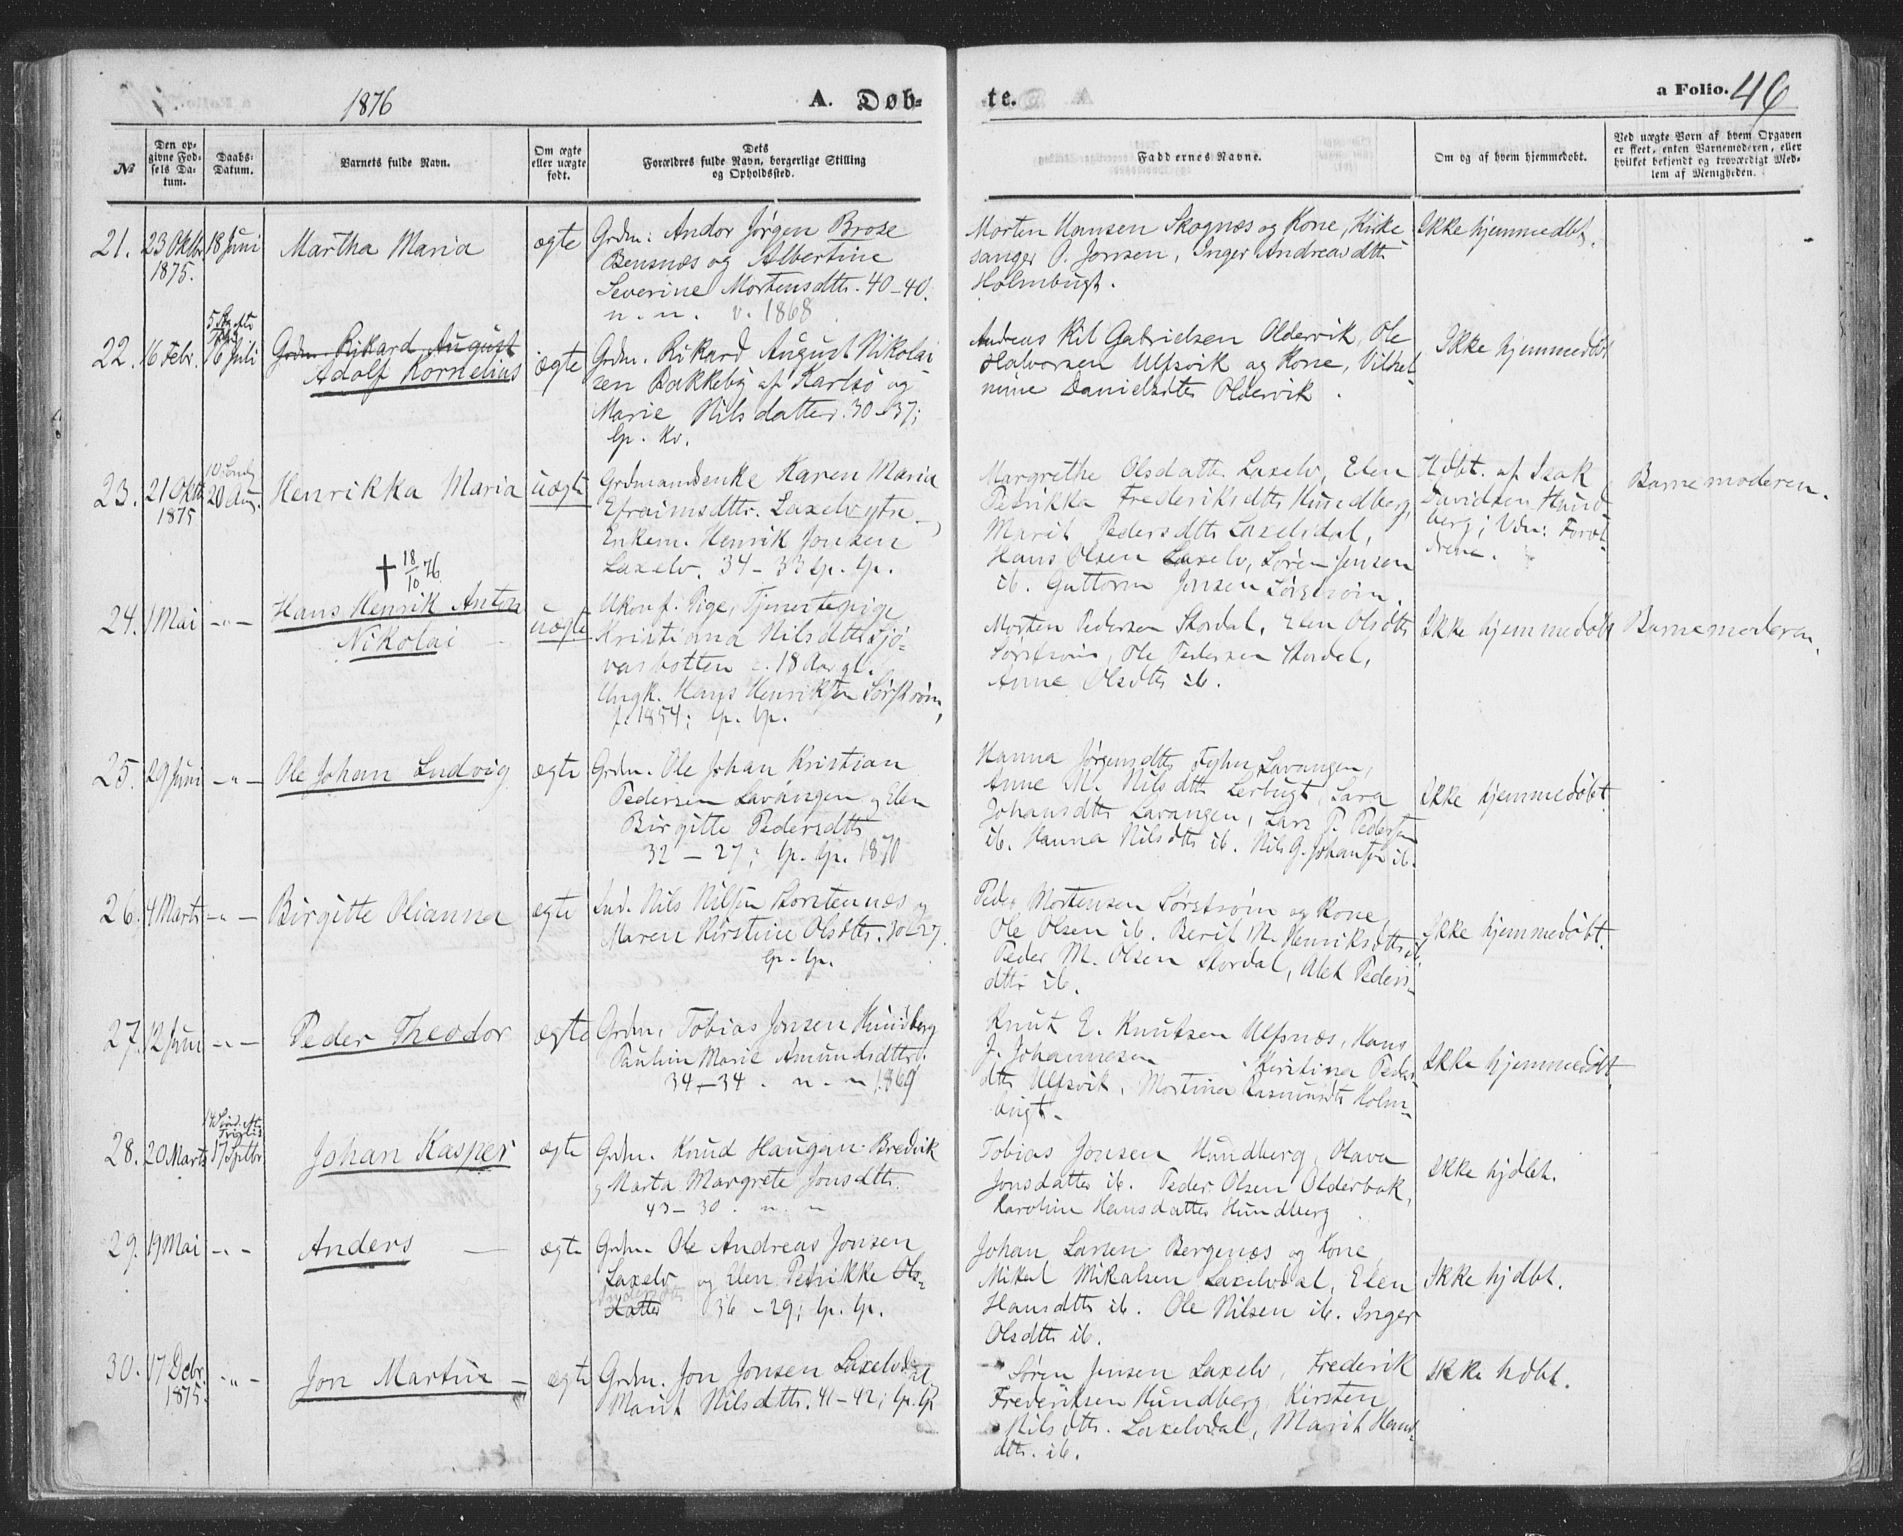 1876
A. Døb-
te.
a Folio. 46
№
Den op-
givne Fød-
sels Da-
tum.
Daabs-
Datum.
Barnets fulde Navn.
Om ægte
eller uægte
født.
Dets
Forældres fulde Navn, borgerlige Stilling
og Opholdssted.
Faddernes Navne.
Om og af hvem hjemmedøbt.
Ved uægte Børn af hvem Opgaven
er skeet, enten Barnemoderen, eller
hvilket bekjendt og troværdigt Med-
lem af Menigheden.
21. 23 Oktbr 1875. 18 Juni Martha Maria ægte
Grdm: Andor Jørgen Brose
Bensnæs og Albertine
Severine Mortensdttr. 40-40.
n. n. v. 1868
Morten Hansen Skognæs og Kone, Kirke
sanger O. Jensen, Inger Andreasdttr
Holmbugt.
Ikke hjemmedbt.
22. 16 Febr. 16 Juli
Grdm. Rikard August
Adolf Kornelius ægte
Grdm. Rikard August Nikolai
sen Bakkeby af Karlsø og
Marie Nilsdatter. 30-37;
lp. Kv.
Andreas Kil Gabrielsen Oldervik, Ole
Halvorsen Ulfsvik og Kone, Vilhel-
mine Danielsdtr Oldervik.
Ikke hjemmedøbt
23. 21 Oktb 1875 20 Aug. Henrikka Maria uægte
Grdmandsenke Karen Maria
Efraimsdttr. Laxelv ytre
Enkem. Henrik Jonsen
Laxelv. 34-33 lp. lp.
Margrethe Olsdattr Laxelv, Elen
Petrikka Frederiksdttr Hundberg,
Marit Pedersdttr Laxelvdal,
Hans Olsen Laxelv, Søren Jensen
ib. Guttorm Jonsen Sørstrøm.
Hdbt. af Isak
Davidsen Hund
berg; Vdn: Foræl-
drene.
Barnemoderen.
† 18/10 76.
24. 1 Mai -"- Hans Henrik Anton
Nikolai uægte
Ukonf. Pige, Tjenestepige
Kristiana Nilsdttr Sjø-
vasbotten c. 18 Aar gl.
Ungk. Hans Henriksen Sørstrøm,
f. 1854; lp. lp.
Morten Pedersen Stordal, Elen Olsdttr
Sørstrøm, Ole Pedersen Stordal,
Anne Olsdttr ib.
Ikke hjemmedøbt
Barnemoderen.
25. 29 Juni -"- Ole Johan Ludvig ægte
Grdm. Ole Johan Kristian
Pedersen Lavangen og Elen
Birgitte Pedersdttr
32-27; lp. lp. 1870
Hanna Jørgensdttr Lavangen,
Anne M. Nilsdttr Lerbugt, Lara
Johansdttr Lavangen, Lars P. Pedersen
ib. Hanna Nilsdttr ib. Nils G. Johansen ib.
Ikke hjemmedøbt
26. 4 Marts -"- Birgitte Olianna ægte
Ind. Nils Nilsen Horstennæs og
Maren Kirstine Olsdttr. 30-27.
lp. lp.
Peder Mortensen Sørstrøm og Kone,
Ole Olsen ib. Berit M. Henriksdttr ib
Peder M. Olsen Stordal, Alet Peders-
dttr ib.
Ikke hjemmedøbt.
27. 12 Juni -"- Peder Theodor ægte
Grdm. Tobias Jonsen Hundberg
Paulin Marie Amundsdttr.
34-34. n. n. 1869
Knut E. Knutsen Ulfsnæs, Hans
J. Johannesen Kristina Peder
dttr Ulfsvik, Mortina Rasmusdtr Holm-
bugt.
Ikke hjemmedøbt
28. 20 Marts 17 Septbr Johan Kasper ægte
Grdm. Knud Haugan Bredvik
og Marta Margrete Jonsdttr.
43-30. n. n
Tobias Jonsen Hundberg, Olava
Jonsdatter ib. Peder Olsen Olderbak,
Karoline Hansdatter Hundberg
Ikke hjdbt.
29. 19 Mai -"- Anders ægte
Grdm. Ole Andreas Jonsen
Laxelv og Elen Petrikke Ols-
datter 36-29; lp. lp.
Johan Larsen Bergenæs og Kone
Mikal Mikalsen Laxelvdal, Elen
Hansdttr ib. Ole Nilsen ib. Inger
Olsdttr ib.
Ikke hjdbt.
30. 17 Decbr 1875. -"- Jon Martin ægte
Grdm. Jon Jonsen Laxelvdal,
Marit Nilsdttr. 41-42; lp. lp
Søren Jensen Laxelv, Frederik
Frederiksen Hundberg, Kirsten
Nilsdttr. Laxelvdal, Marit Hans-
dttr. ib.
Ikke hdbt.